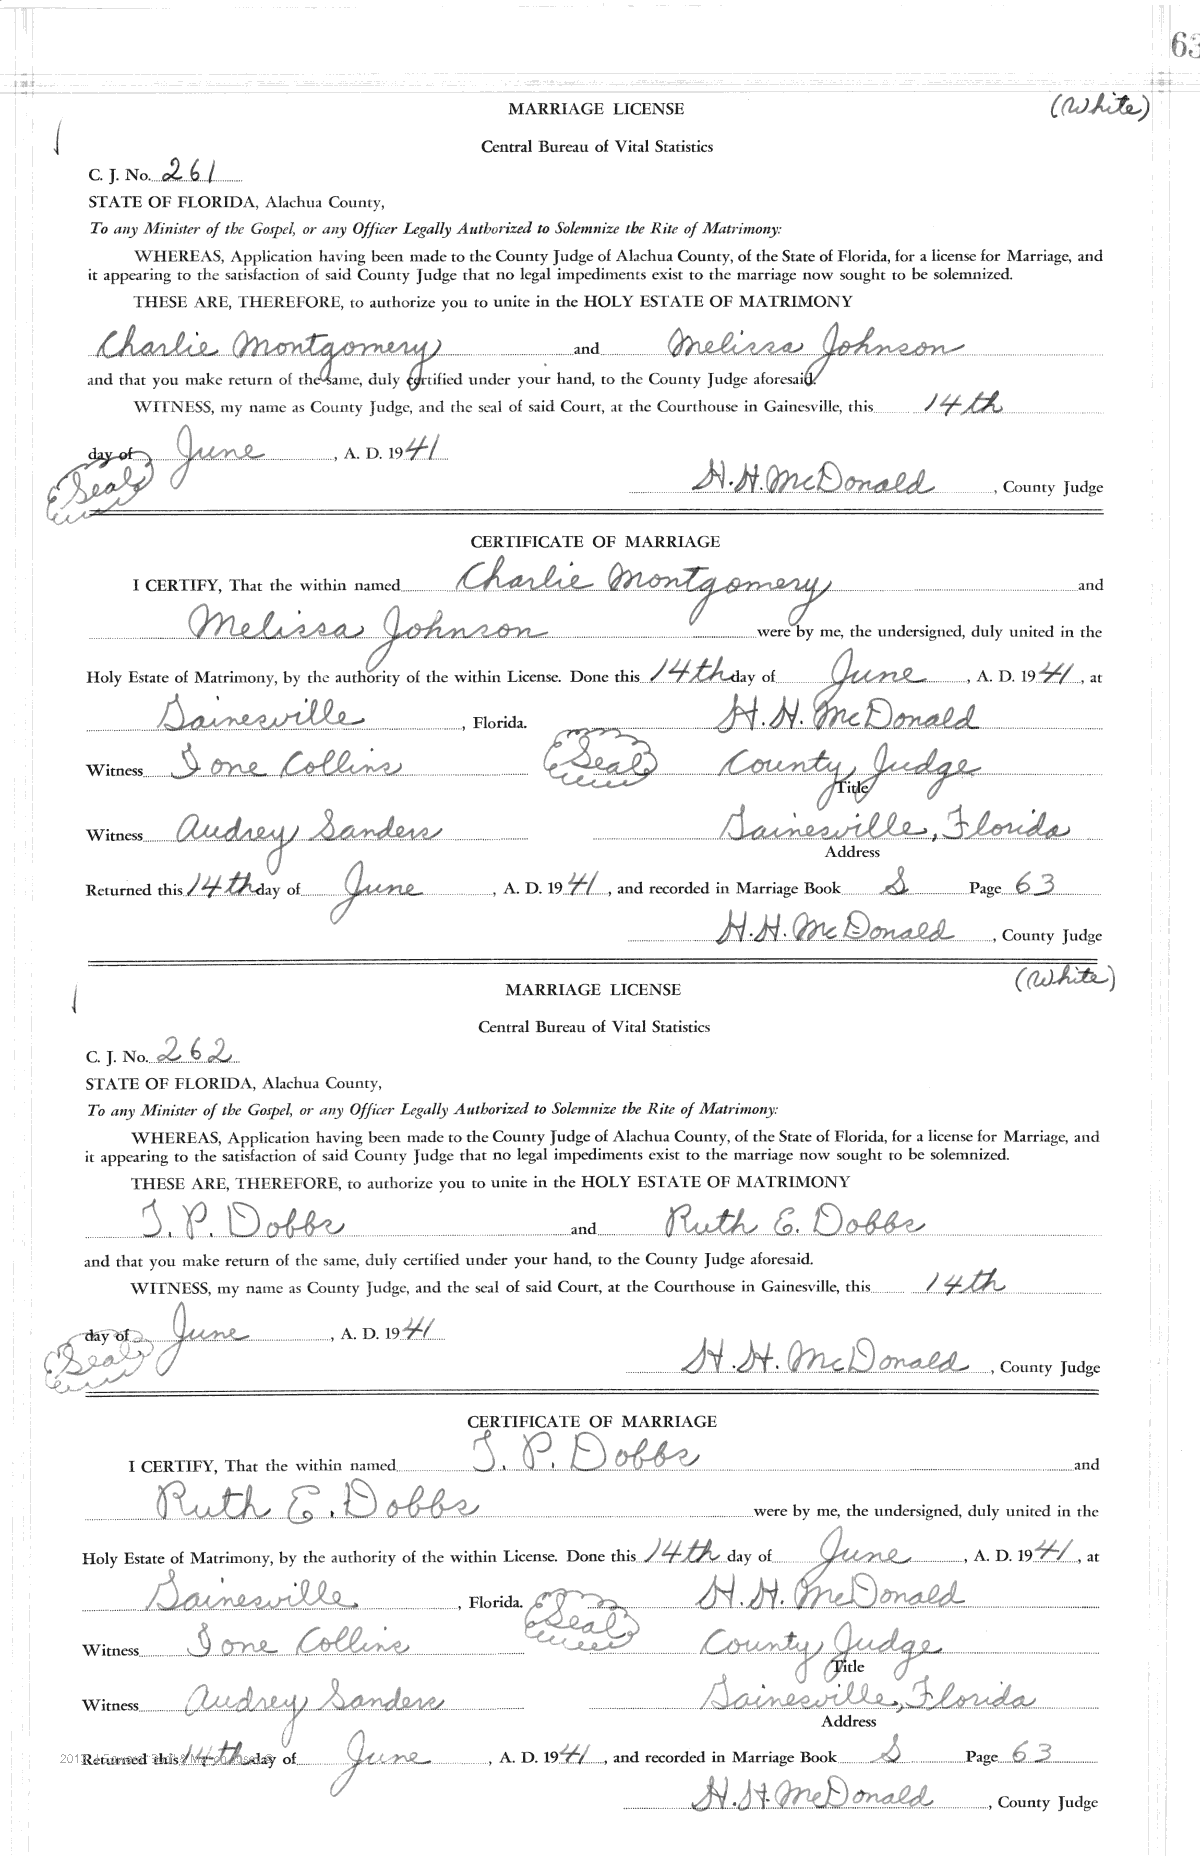 63
MARRIAGE LICENSE
(White)
Central Bureau of Vital Statistics
C. J. No. 261
STATE OF FLORIDA, Alachua County,
To any Minister of the Gospel, or any Officer Legally Authorized to Solemnize the Rite of Matrimony:
WHEREAS, Application having been made to the County Judge of Alachua County, of the State of Florida, for a license for Marriage, and
it appearing to the satisfaction of said County Judge that no legal impediments exist to the marriage now sought to be solemnized.
THESE ARE, THEREFORE, to authorize you to unite in the HOLY ESTATE OF MATRIMONY
Charlie Montgomery and Melissa Johnson
and that you make return of the same, duly certified under your hand, to the County Judge aforesaid.
WITNESS, my name as County Judge, and the seal of said Court, at the Courthouse in Gainesville, this 14th
day of June, A. D. 1941
Seal
H. H. McDonald, County Judge
CERTIFICATE OF MARRIAGE
I CERTIFY, That the within named Charlie Montgomery and
Melissa Johnson were by me, the undersigned, duly united in the
Holy Estate of Matrimony, by the authority of the within License. Done this 14th day of June, A. D. 1941, at
Gainesville, Florida. H. H. McDonald
Witness Ione Collins Seal County Judge
Title
Witness Audrey Sanders Gainesville, Florida
Address
Returned this 14th day of June, A. D. 1941, and recorded in Marriage Book S Page 63
H. H. McDonald, County Judge
(White)
MARRIAGE LICENSE
Central Bureau of Vital Statistics
C. J. No. 262
STATE OF FLORIDA, Alachua County,
To any Minister of the Gospel, or any Officer Legally Authorized to Solemnize the Rite of Matrimony:
WHEREAS, Application having been made to the County Judge of Alachua County, of the State of Florida, for a license for Marriage, and
it appearing to the satisfaction of said County Judge that no legal impediments exist to the marriage now sought to be solemnized.
THESE ARE, THEREFORE, to authorize you to unite in the HOLY ESTATE OF MATRIMONY
T. P. Dobbs and Ruth E. Dobbs
and that you make return of the same, duly certified under your hand, to the County Judge aforesaid.
WITNESS, my name as County Judge, and the seal of said Court, at the Courthouse in Gainesville, this 14th
day of June, A. D. 1941
Seal
H. H. McDonald, County Judge
CERTIFICATE OF MARRIAGE
I CERTIFY, That the within named T. P. Dobbs and
Ruth E. Dobbs were by me, the undersigned, duly united in the
Holy Estate of Matrimony, by the authority of the within License. Done this 14th day of June, A. D. 1941, at
Gainesville, Florida. H. H. McDonald
Witness Ione Collins Seal County Judge
Title
Witness Audrey Sanders Gainesville, Florida
Address
Returned this 14th day of June, A. D. 1941, and recorded in Marriage Book S Page 63
H. H. McDonald, County Judge